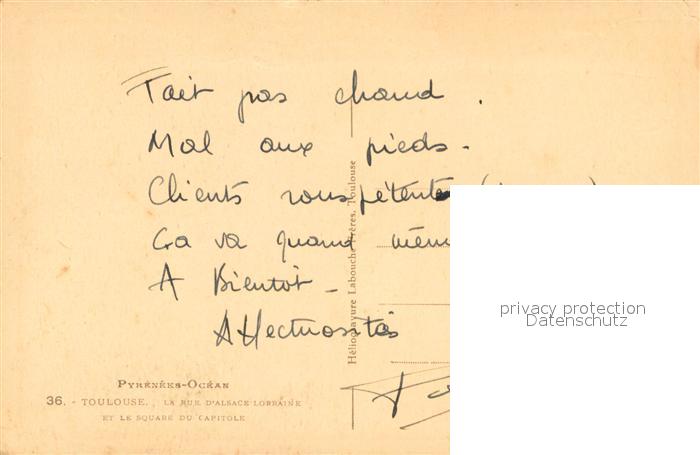 Fait pas chaud.
Mal aux pieds -
Clients rouspétents
Ca va quand mêm
A Bientôt -
Affectuosités
Héliogravure Labouche Frères, Toulouse
privacy protection
Datenschutz
PYRÉNÉES-OCÉAN
36. - TOULOUSE. LA RUE D'ALSACE-LORRAINE
ET LE SQUARE DU CAPITOLE